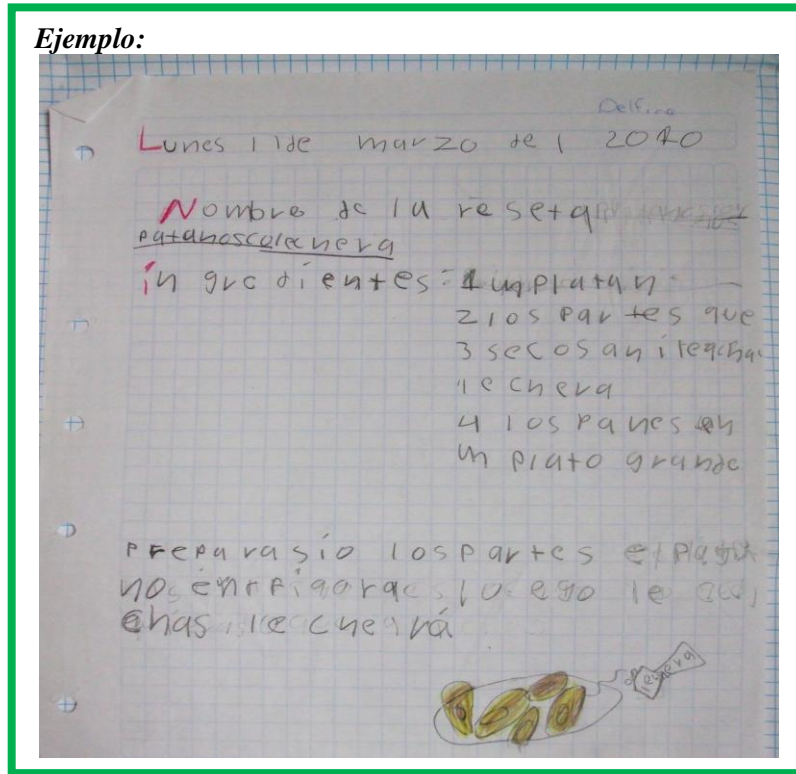 Ejemplo:
Delfina
Lunes 11de marzo del 2010
Nombre de la reseta
patanoscolechera
ingredientes: 1 unplatan
2 los partes que
3 secosan i leacha
lechera
4 los panes en
un plato grande
preparasio los partes
no luego le
chas lechera
lechera